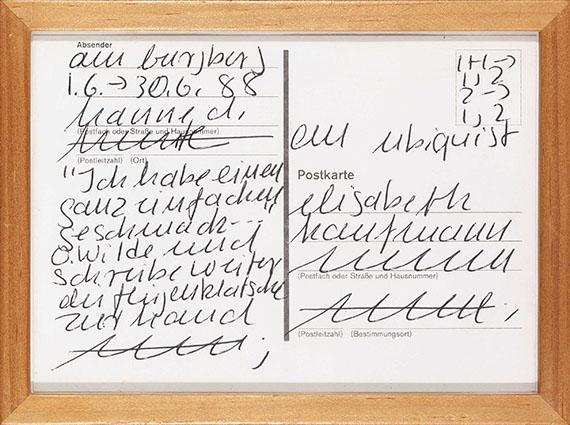 Absender
am burgberg
1.6. → 30.6. 88
hanne d.
(Postfach oder Straße und Hausnummer)
(Postleitzahl) (Ort)
"Ich habe einen
ganz einfachen
geschmack...
O. Wilde und
schreibe weiter
die fliegenklatsche
zur hand
1+1→
1, 2
2→
1, 2
an ubiquist
Postkarte
elisabeth
kaufmann
(Postfach oder Straße und Hausnummer)
(Postleitzahl) (Bestimmungsort)